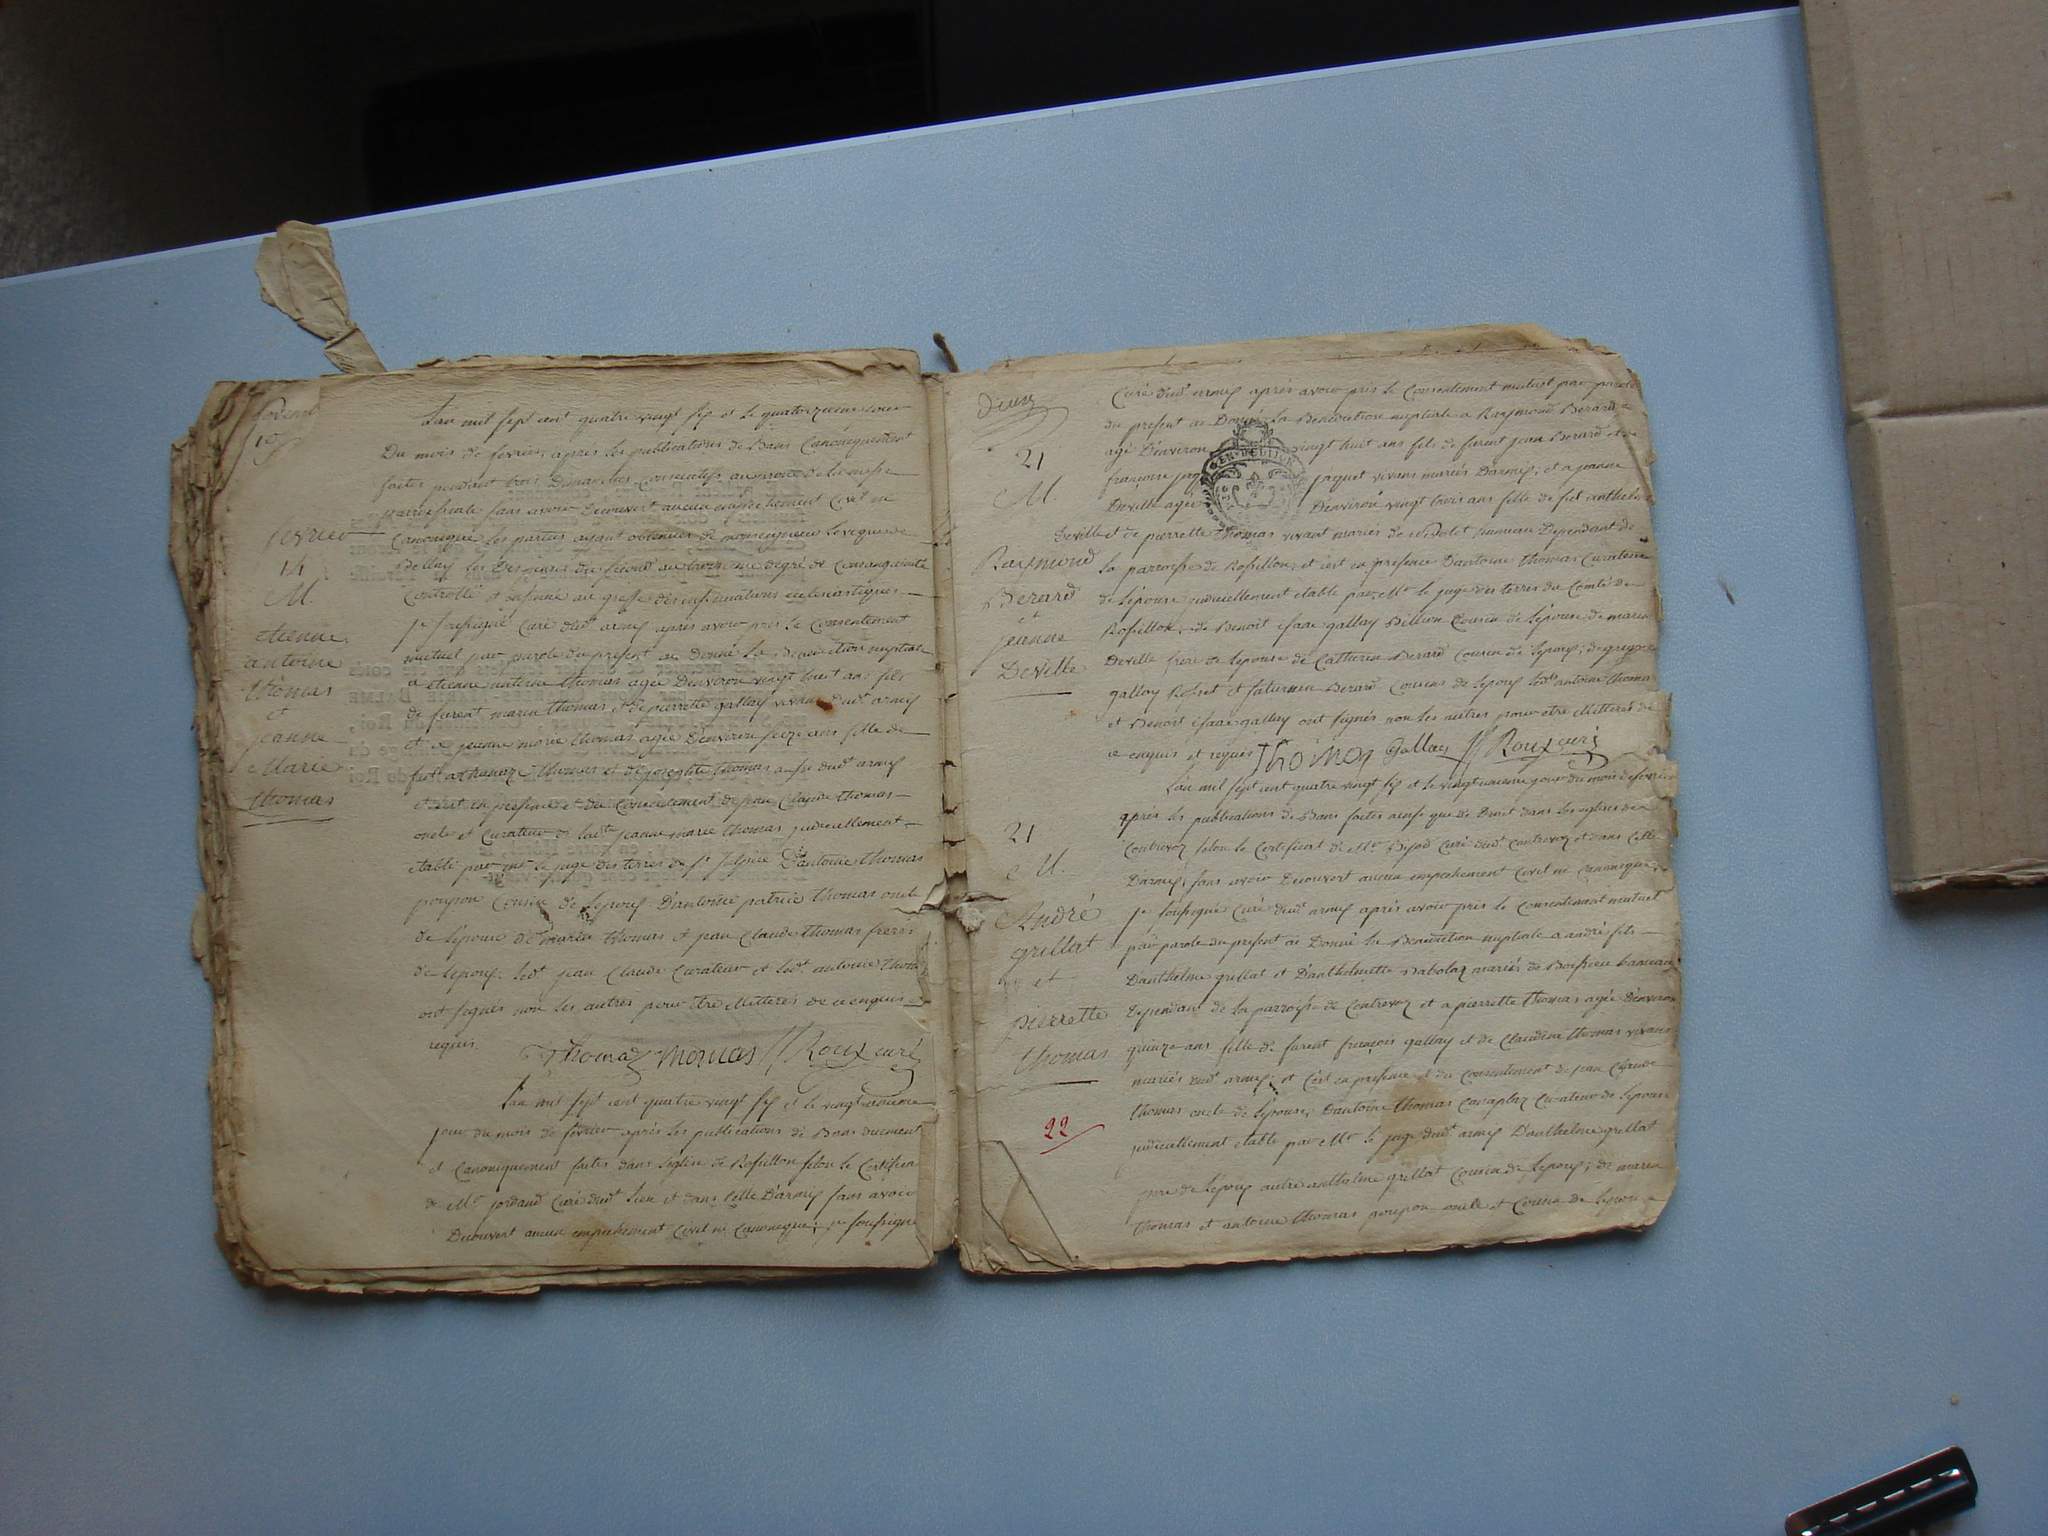 fevrier
14
M.
etienne
antoine
thomas
et
jeanne
Marie
thomas
Lan mil sept cent quatre vingt six et le quatorzieme jour
Du mois de fevrier, apres les publications de Bans Canoniquement
faites pendant trois Dimanches Consecutifs au prone de la messe
parroissiale sans avoir Decouvert aucun empechement Civil ni
Canonique les parties ayant obtenues de monseigneur leveque de
Bellay les Dispenses du second au troisieme degré de Consanguinité
Controllé et insinué au greffe des insinuations eclesiastiques
je soussigné Curé dud. armix apres avoir pris le Consentement
mutuel par parole du present ai Donné la Benediction nuptiale
a etienne antoine thomas agé Denviron vingt huit ans fils
de furent marin thomas et de pierrette gallay vivans dud. armix
et a jeanne marie thomas agée Denviron seize ans fille de
fut athanaze thomas et de josephte thomas dud. armix
et cest en presence et du Consentement de jean Claude thomas
oncle et Curateur de ladte jeanne marie thomas judiciellement
etabli par mr. le juge des terres de st. Sulpice Dantoine thomas
poupon Cousin de lepoux Dantoine patrice thomas oncle
de lepouse de marin thomas et jean Claude thomas freres
de lepoux. led. jean Claude Curateur et led. antoine thomas
ont signés non les autres pour etre illitteres de ce enquis
requis.
Thomas thomas Roux curé
Lan mil sept cent quatre vingt six et le vingt unieme
jour du mois de fevrier apres les publications de Bans duement
et Canoniquement faites dans leglise de Rossillon selon le Certificat
de Mr. jordand Curé dud. lieu et dans Celle Darmix sans avoir
Decouvert aucun empechement Civil ni Canonique; je soussigné
Deux
21
M.
Raymond
Berard
et
jeanne
Deville
Curé dud. armix après avoir pris le Consentement mutuel par parole
du present ai Donné la Benediction nuptiale a Raymond Berard
agé Denviron vingt huit ans fils de furent jean Berard et de
françoise jaquet vivans mariés Darmix; et a jeanne
GEN. DE DIJON
Deville agée Denviron vingt trois ans fille de fut anthelme
Deville et de pierrette thomas vivant mariés de hameau Dependant de
la parroisse de Rossillon, et cest en presence Dantoine thomas Curateur
de lepouse judiciellement etabli par Mr. le juge des terres du Comté de
Rossillon, de Benoit isaac gallay Billion Cousin de lepouse de marin
Deville frere de lepouse de Catherin Berard Cousin de lepoux; de
gallay et saturnin Berard Cousins de lepoux led. antoine thomas
et Benoit isaac gallay ont signés non les autres pour etre illitteres de
ce enquis et requis Thomas Gallay Roux curé
21
M.
André
grillat
et
pierrette
thomas
22
Lan mil sept cent quatre vingt six et le vingt unieme jour du mois de fevrier
après les publications de Bans faites ainsi que de Droit dans les eglises de
Contrevoz selon le Certificat de Mr. Curé dud. Contrevoz et dans Celle
Darmix, sans avoir Decouvert aucun empechement Civil ni Canonique,
je soussigné Curé dud. armix après avoir pris le Consentement mutuel
par parole du present ai Donné la Benediction nuptiale a andré fils
Danthelme grillat et Danthelmette mariés de hameau
Dependant de la parroisse de Contrevoz et a pierrette thomas agée Denviron
quinze ans fille de furent françois gallay et de Claudine thomas vivans
mariés dud. armix; et Cest en presence et du Consentement de jean Claude
thomas oncle de lepouse, Dantoine thomas Curateur de lepouse
judiciellement etabli par Mr. le juge dud. armix Danthelme grillat
pere de lepoux autre anthelme grillat Cousin de lepoux; de marin
thomas et antoine thomas poupon oncle et Cousin de lepouse